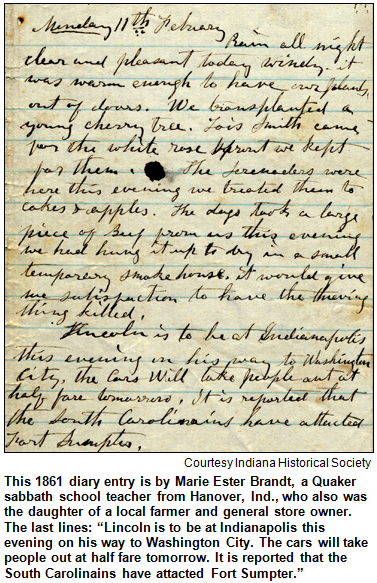 Monday 11th Febuary
Rain all night
clear and pleasant today windy. it
was warm enough to have our plants
out of doors. We transplanted a
young cherry tree. Lois Smith came
for the white rose sprout we kept
for them. The Serenaders were
here this evening we treated them to
cakes & apples. The dogs took a large
piece of Beef from us this evening
we had hung it up to dry in a small
temperary smoke house. it would give
me satisfaction to have the thieving
thing killed.
Lincoln is to be at Indianapolis
this evening on his way to Washington
City, the Cars Will take people out at
half fare tomorrow, It is reported that
the South Carolinains have attacted
Fort Sumpter.
Courtesy Indiana Historical Society
This 1861 diary entry is by Marie Ester Brandt, a Quaker
sabbath school teacher from Hanover, Ind., who also was
the daughter of a local farmer and general store owner.
The last lines: “Lincoln is to be at Indianapolis this
evening on his way to Washington City. The cars will take
people out at half fare tomorrow. It is reported that the
South Carolinains have attacted Fort Sumpter.”